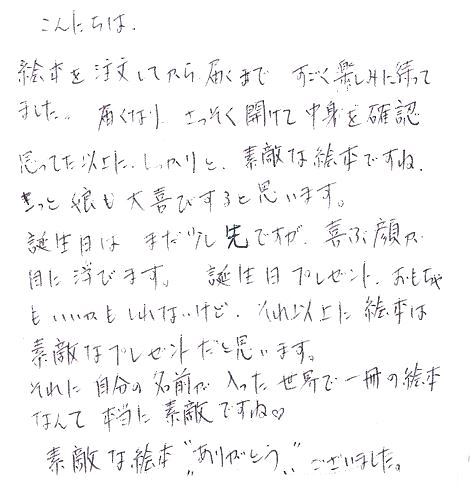 こんにちは.
絵本を注文してから届くまで すごく楽しみに待って
ました。 届くなり さっそく開けて中身を確認
思ってた以上に.しっかりと、素敵な絵本ですね.
きっと娘も大喜びすると思います。
誕生日は まだ少し先ですが. 喜ぶ顔が
目に浮びます。 誕生日プレゼント. おもちゃ
もいいかもしれないけど. それ以上に絵本は
素敵なプレゼントだと思います。
それに自分の名前が入った世界で一冊の絵本
なんて本当に素敵ですね♡
素敵な絵本"ありがとう"ございました。